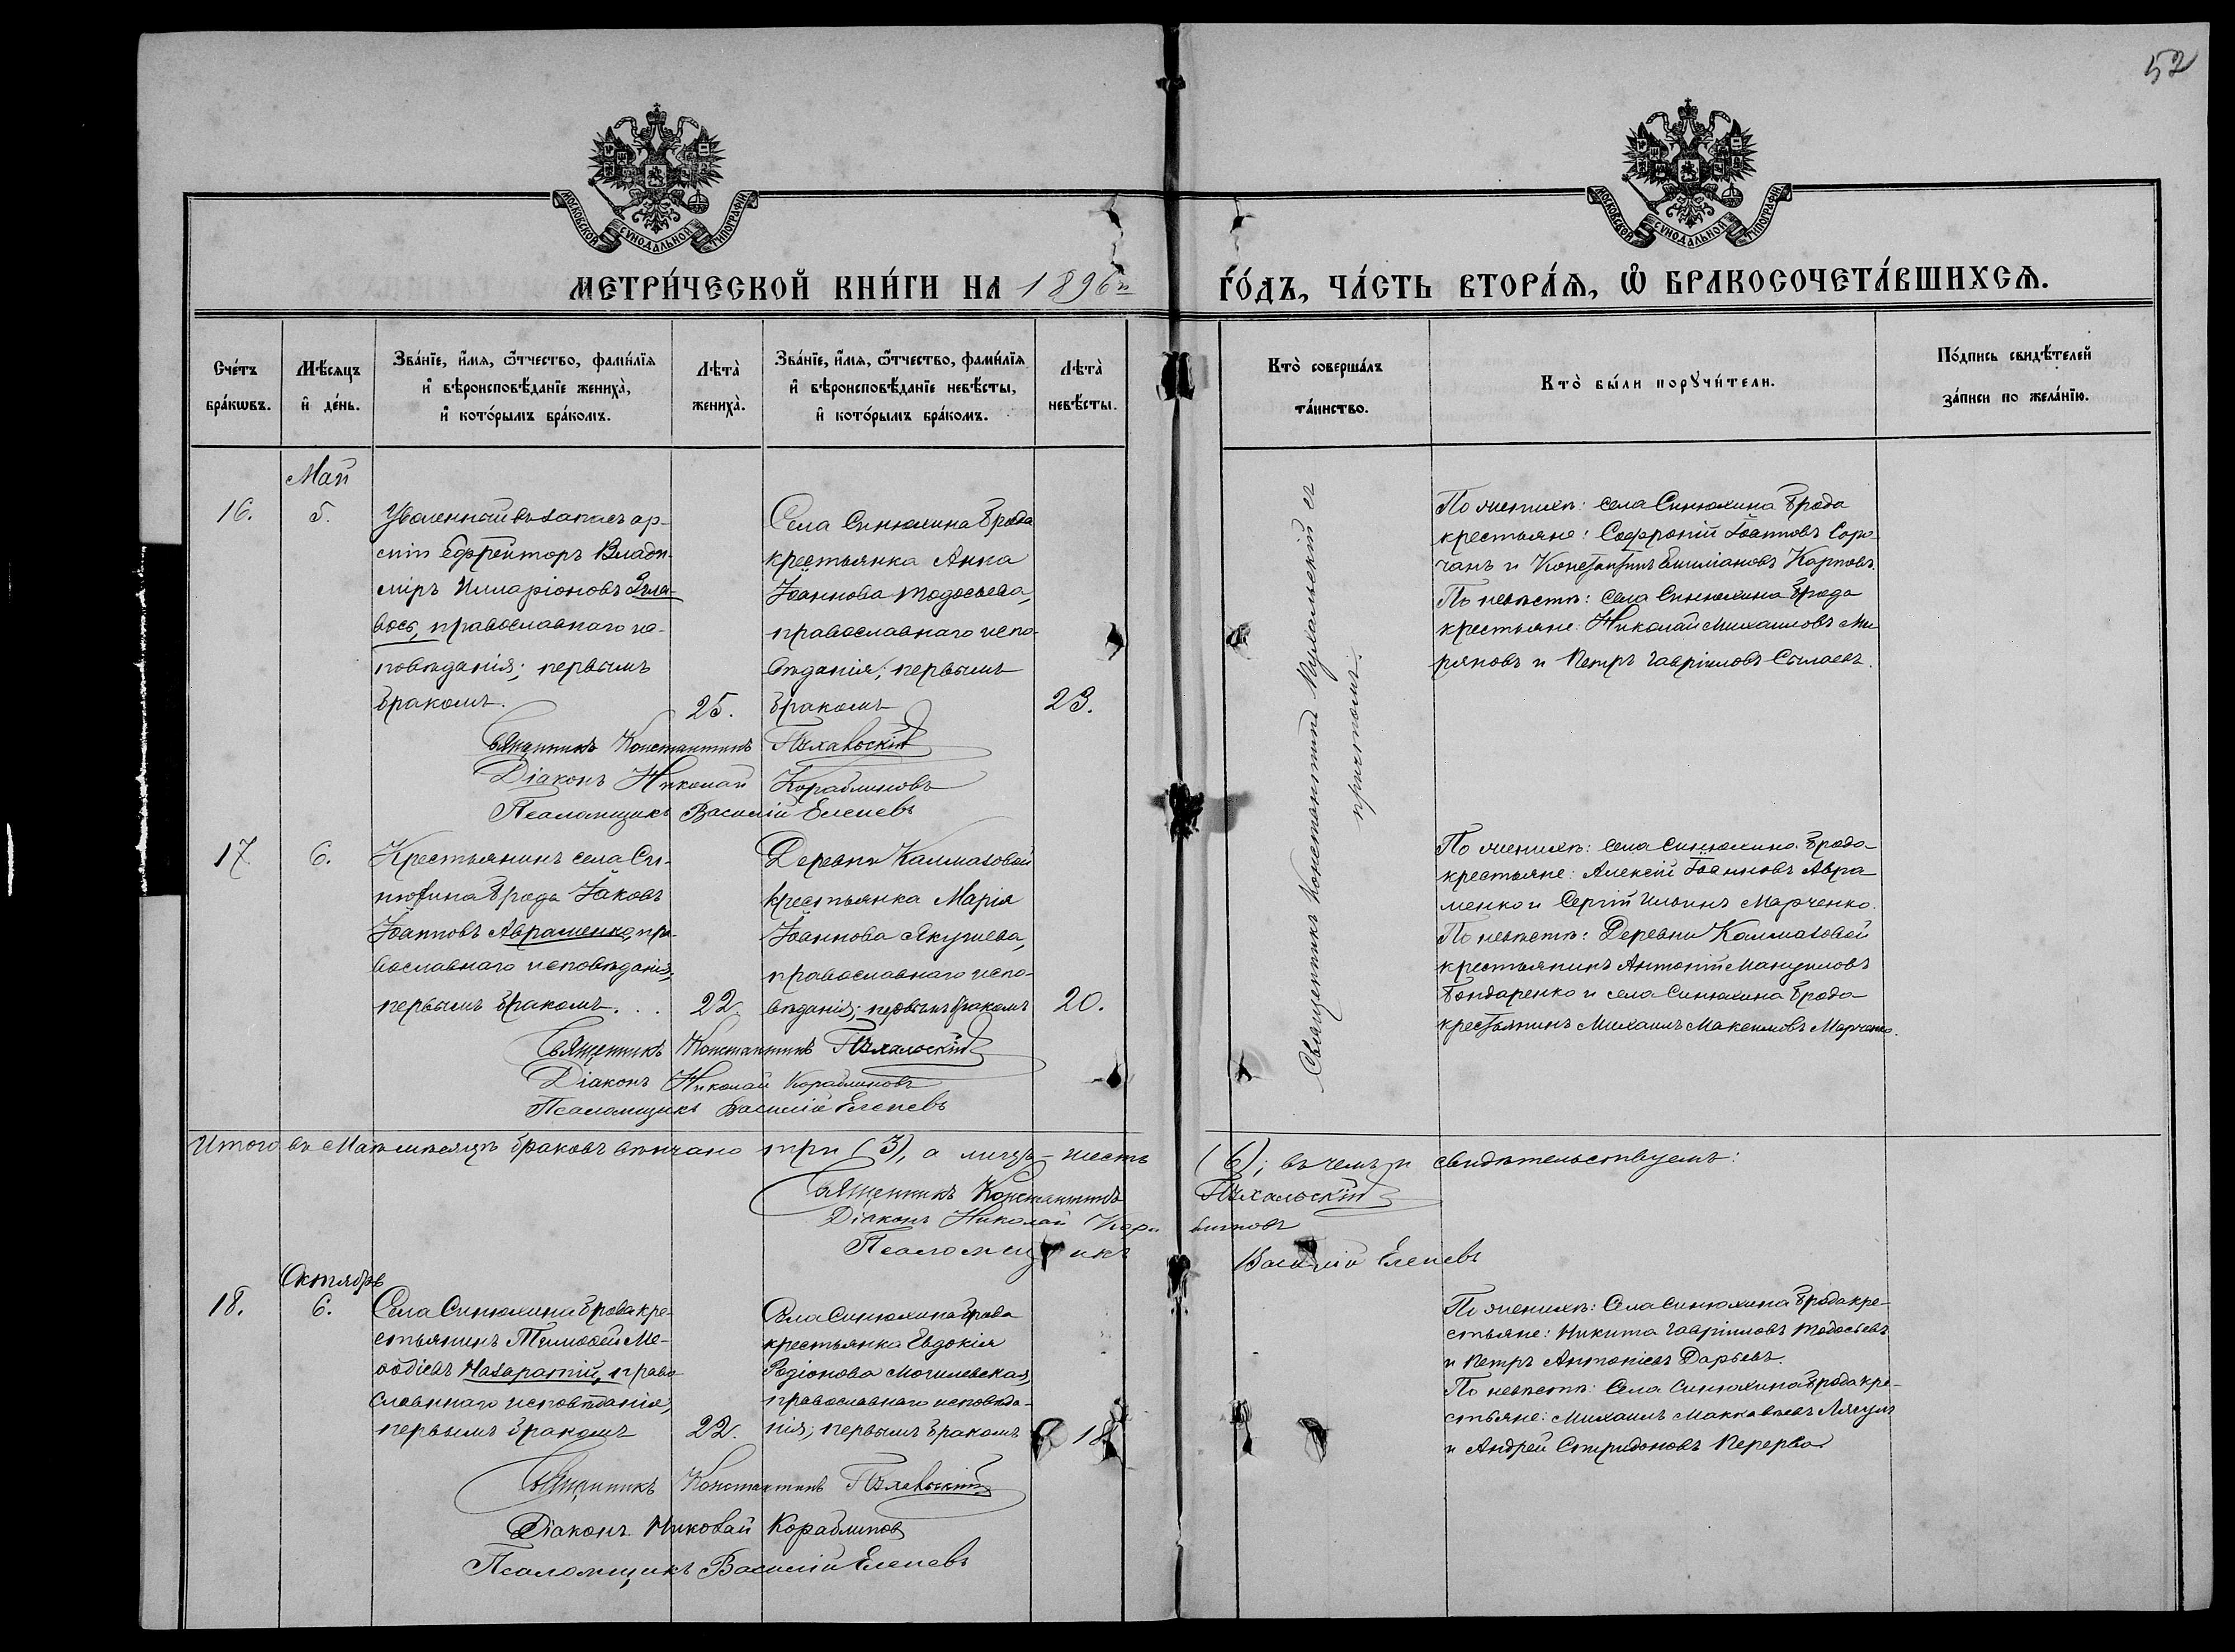 52
МОСКОВСКОЙ СѴНОДАЛЬНОЙ ТИПОГРАФІИ.
МОСКОВСКОЙ СѴНОДАЛЬНОЙ ТИПОГРАФІИ.
МЕТРИ́ЧЕСКОЙ КНИ́ГИ НА 1896й ГО́ДЪ, ЧА́СТЬ ВТОРА́Я, Ѽ БРАКОСОЧЕТА́ВШИХСЯ.
Сче́тъ
бра́кѡвъ.
Мѣ́сяцъ
и де́нь.
Зва́нїе, и́мя, ѻ҆́тчество, фами́лїя
и вѣроисповѣ́данїе жениха̀,
и кото́рымъ бра́комъ.
Лѣта̀
жениха̀.
Зва́нїе, и́мя, ѻ҆́тчество, фами́лїя
и вѣроисповѣ́данїе невѣ́сты,
и кото́рымъ бра́комъ.
Лѣта̀
невѣ́сты.
Кто̀ соверша́лъ
та́инство.
Кто̀ бы́ли порꙋчи́тели.
По́дпись свидѣ́телей
за́писи по жела́нїю.
Май
16.
5.
Уволенный въ запасъ ар-
міи Ефрейторъ Влади-
міръ Илларіоновъ
православнаго ис-
повѣданія; первымъ
бракомъ.
25.
Села Синюхина Брода
крестьянка Анна
Іоаннова Тодосьева,
православнаго испо-
вѣданія; первымъ
бракомъ
23.
Священникъ Константинъ Пухальскій съ
причтомъ.
По женихѣ: села Синюхина Брода
крестьяне: Софроній Іоанновъ Соро-
чанъ и Константинъ Карповъ.
По невѣстѣ: села Синюхина Брода
крестьяне: Николай Михаиловъ Ми
ряновъ и Петръ Гавріиловъ Сылаевъ.
Священникъ Константинъ Пухальскій
Діаконъ Николай Кораблиновъ
Псаломщикъ Василій Еленевъ
17.
6.
Крестьянинъ села Си-
нюхина Брода Іаковъ
Іоанновъ Авраменко, пра-
вославнаго исповѣданія;
первымъ бракомъ. . .
22.
Деревни Калмазовой
крестьянка Марія
Іоаннова Якушева,
православнаго испо-
вѣданія; первымъ бракомъ
20.
По женихѣ: села Синюхина Брода
крестьяне: Алексій Іоанновъ Авра
менко и Сергій Ильинъ Марченко.
По невѣстѣ: Деревни Калмазовой
крестьянинъ Антоній Мануиловъ
Бондаренко и села Синюхина Брода
крестьянинъ Михаилъ Максимовъ Марченко.
Священникъ Константинъ Пухальскій
Діаконъ Николай Кораблиновъ
Псаломщикъ Василій Еленевъ
Итого въ Маѣ мѣсяцѣ браковъ вѣнчано три (3), а лицъ – шесть (6); въ чемъ и свидѣтельствуемъ:
Священникъ Константинъ Пухальскій
Діаконъ Николай Кора блиновъ
Псаломщикъ Василій Еленевъ
Октябрь
18.
6.
Села Синюхина Брода кре-
стьянинъ Тимоѳей Ме-
ѳодіевъ Назаратій, право
славнаго исповѣданія,
первымъ бракомъ
22.
Села Синюхина Брода
крестьянка Евдокія
Родіонова Могилевская,
православнаго исповѣда-
нія; первымъ бракомъ
18
По женихѣ: Села Синюхина Брода кре-
стьяне: Никита Гавріиловъ Тодосьевъ
и Петръ Антоніевъ Дарьевъ.
По невѣстѣ: Села Синюхина Брода кре-
стьяне: Михаилъ Маккавѣевъ
и Андрей Спиридоновъ Перерва
Священникъ Константинъ Пухальскій
Діаконъ Николай Кораблиновъ
Псаломщикъ Василій Еленевъ